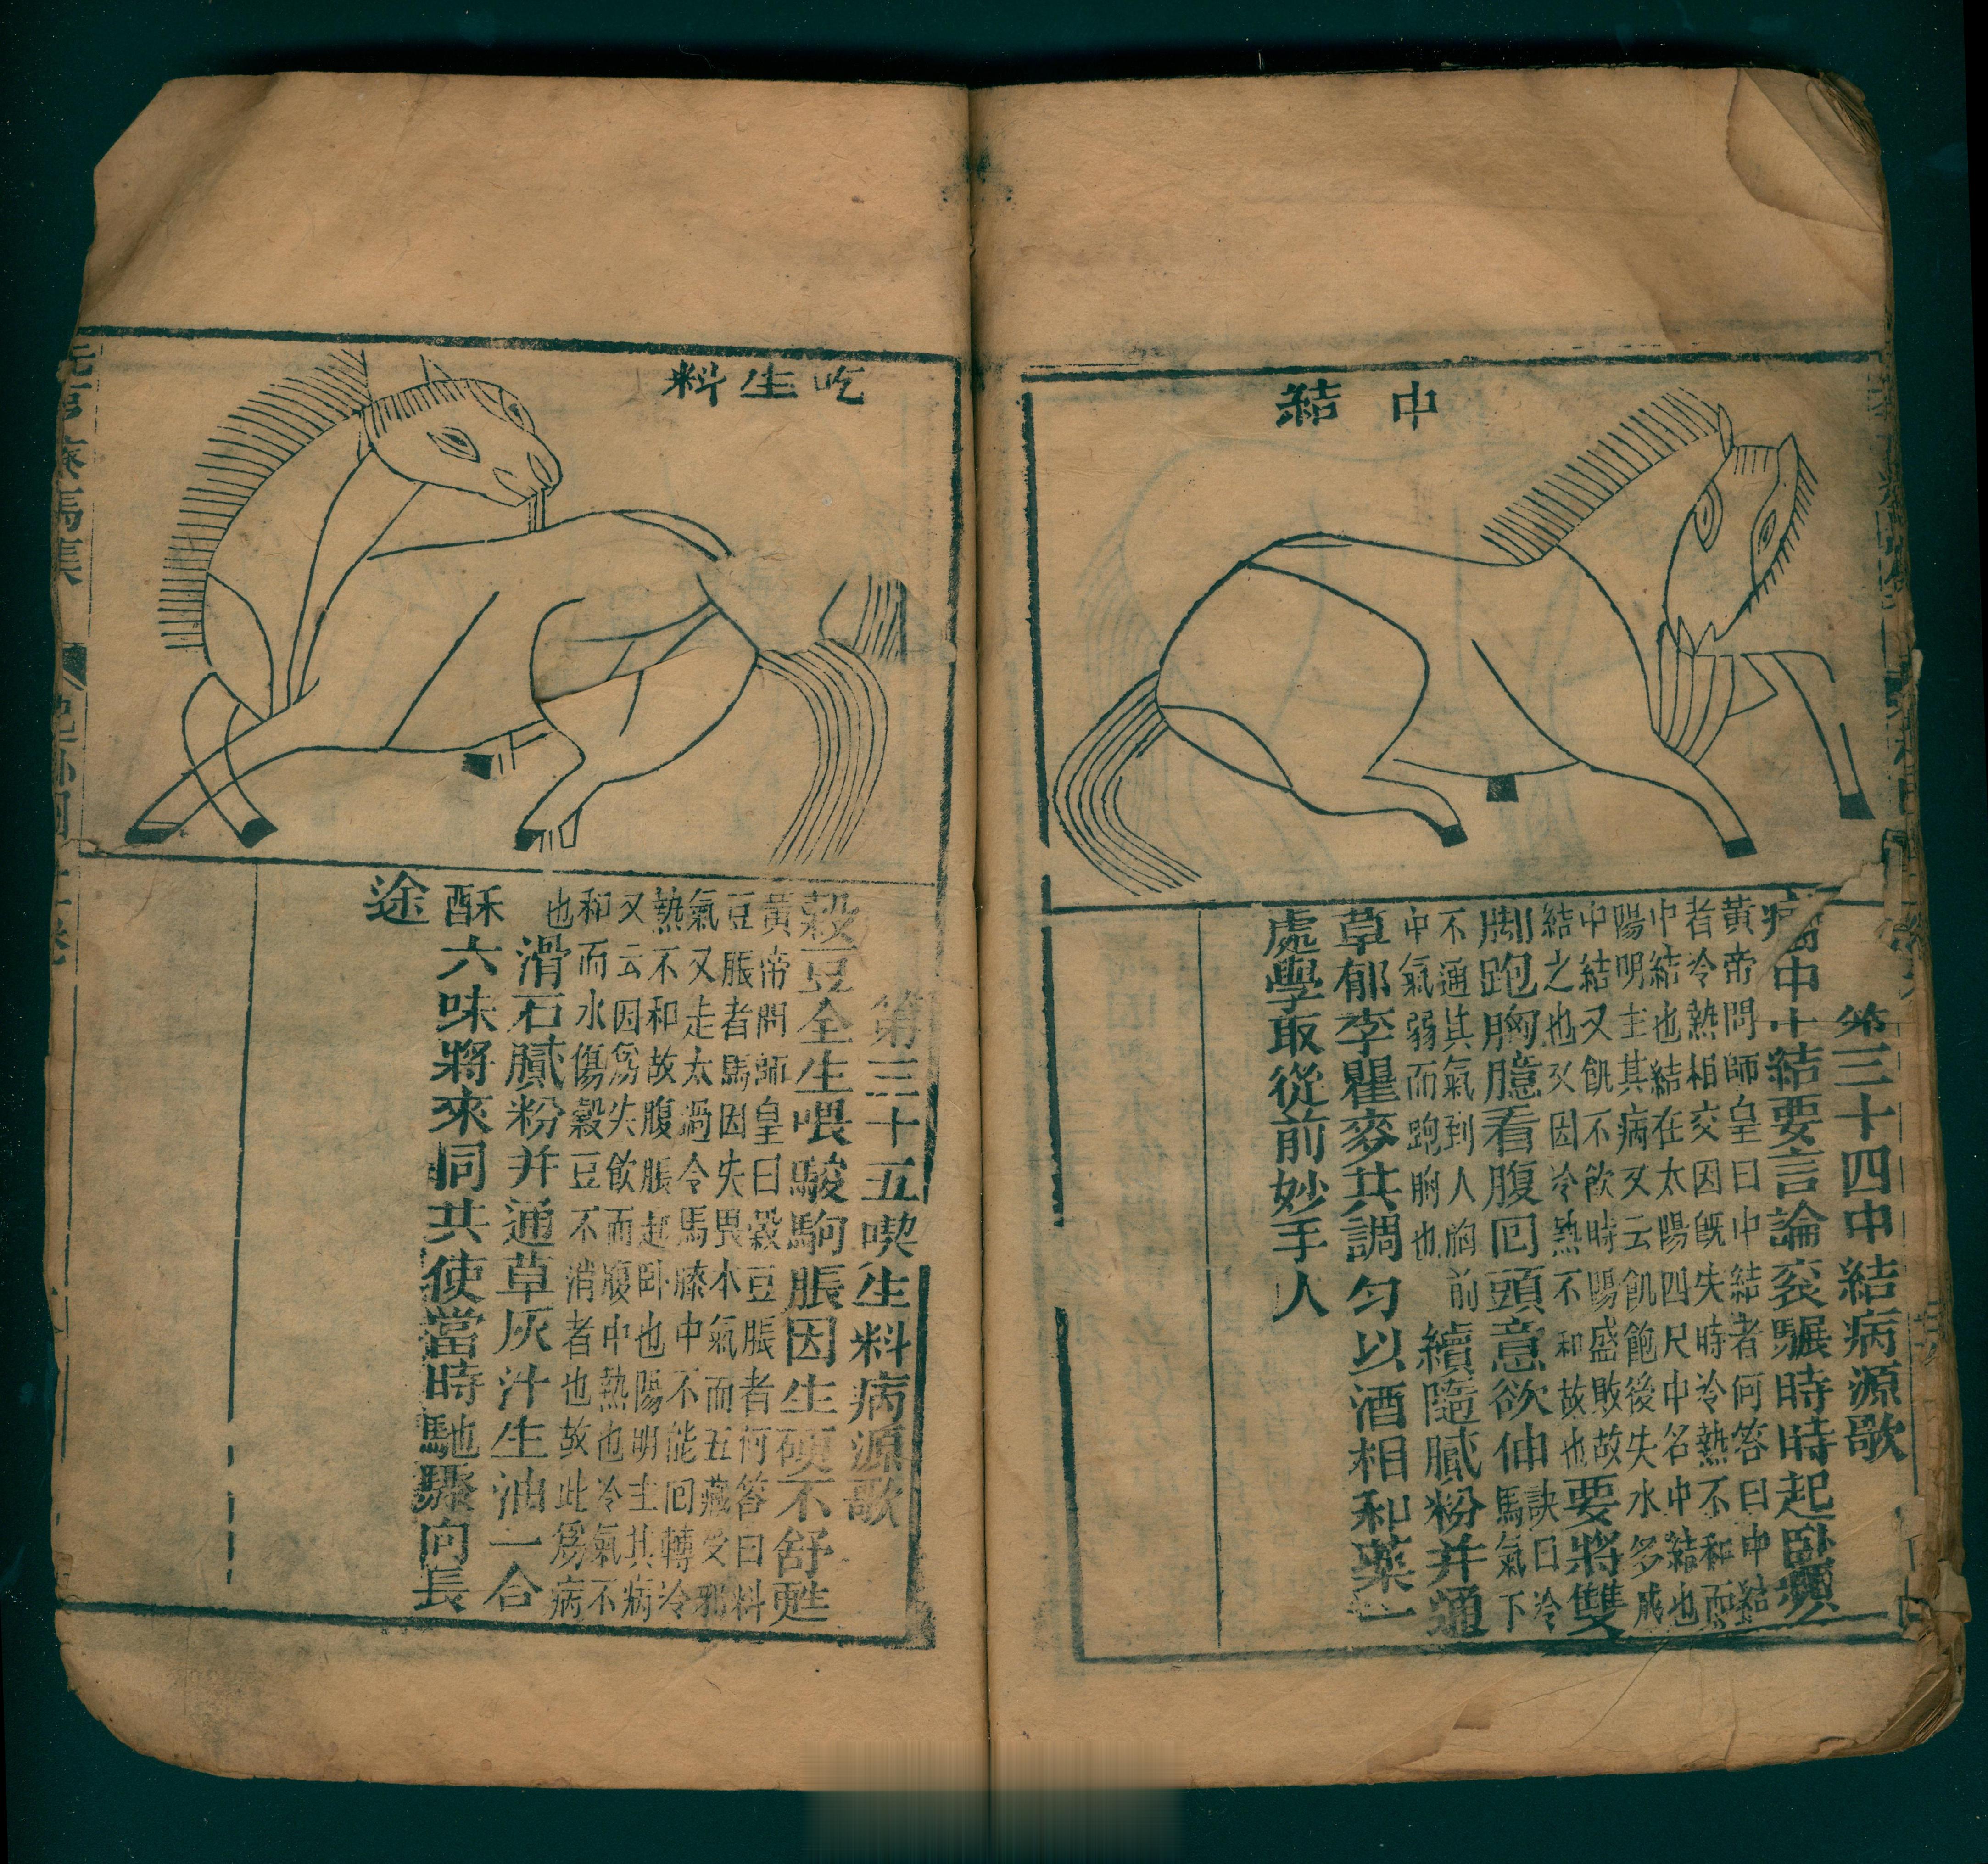 中結
第三十四中結病源歌
病中中結要言論衮驏時時起臥頻
黃帝問師皇曰中結者何答曰中結
者冷熱相交因旣失時冷熱不和而
中結也結在太陽四尺中名中結也
陽明主其病又云飢飽後失水多成
中結又飢不飲時陽盛敗故
結之也又因冷熱不和故也
要將雙
脚跑胸臆看腹囘頭意欲伸
訣曰冷
馬氣下
不通其氣到人胸前
中氣弱而跑胸也
續隨膩粉并通
草郁李瞿麥共調匀以酒相和藥一
處學取從前妙手人
吃生料
第三十五喫生料病源歌
穀豆全生喂駿駒脹因生硬不舒甦
黃帝問師皇曰穀豆脹者何答曰料
豆脹者馬因失畏木氣而五藏受邪
氣又走太過令馬膝中不能囘轉冷
熱不和故腹脹起卧也陽明主其病
又云因爲失飲而腹中熱也冷氣不
和而水傷穀豆不消者也故此爲病
也
滑石膩粉并通草灰汁生油一合
酥六味將來同共使當時馳驟向長
途
元亨療馬集